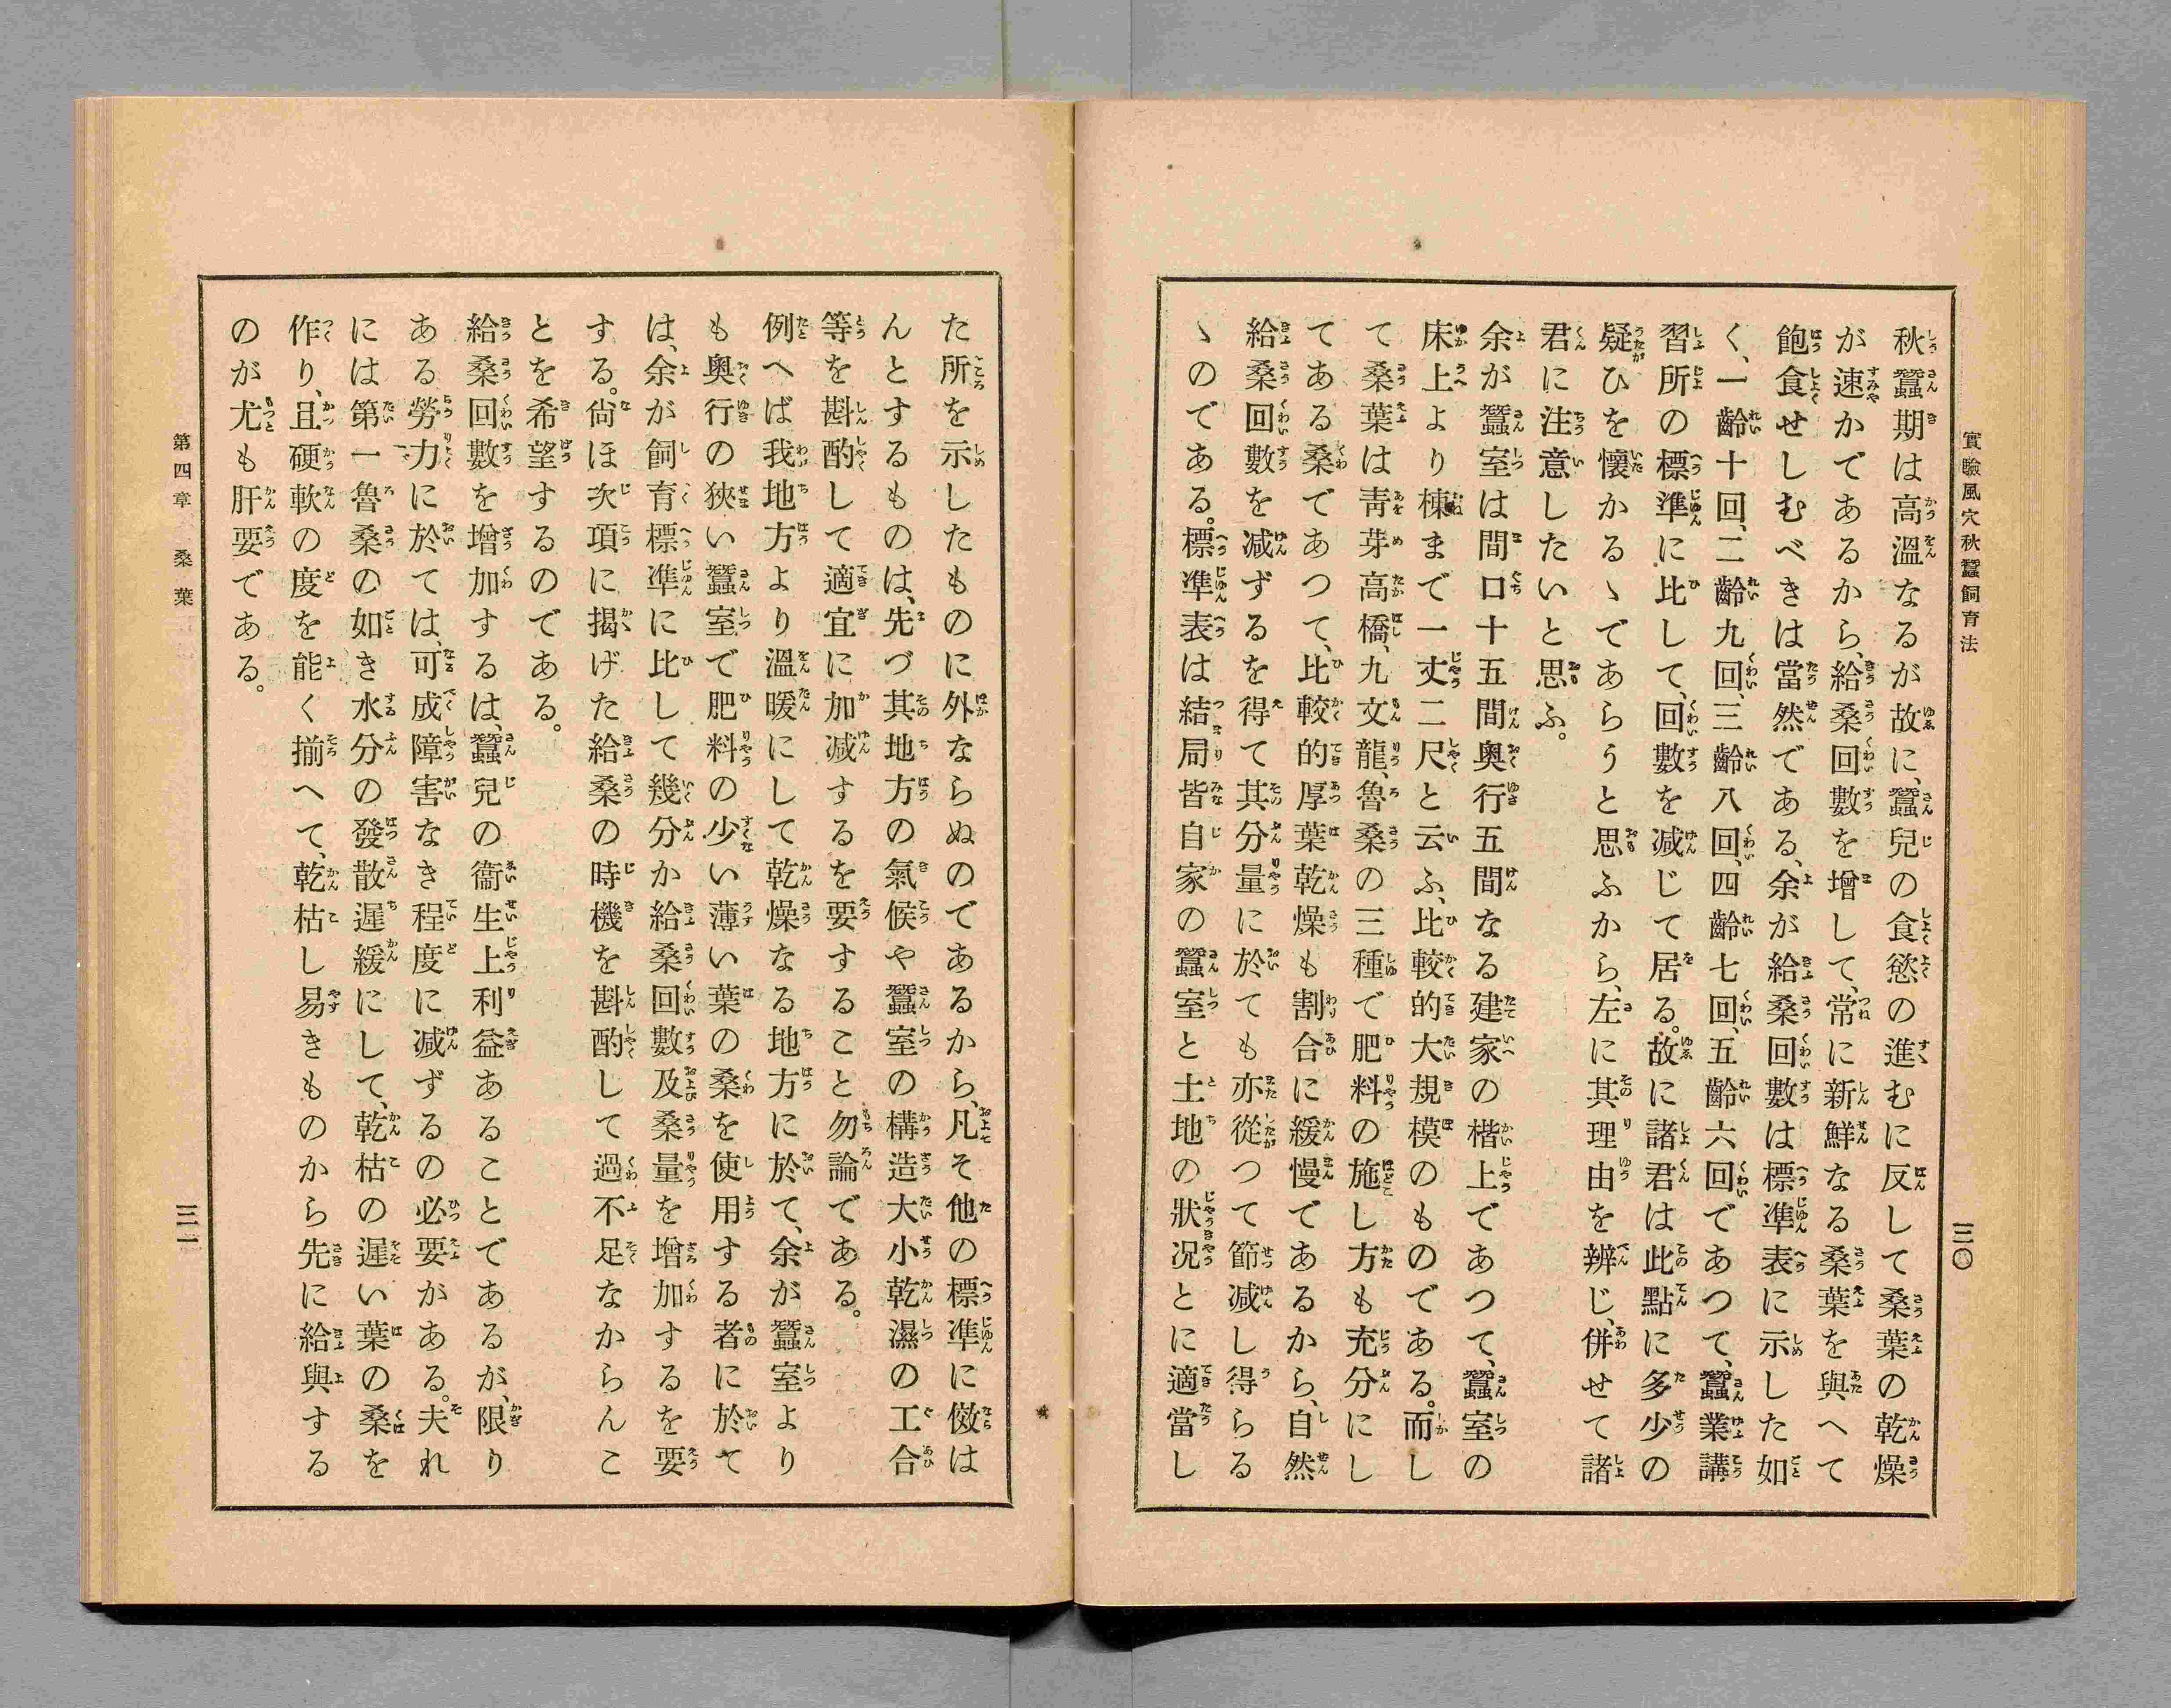 實驗風穴秋蠶飼育法
三〇
秋蠶期は高溫なるが故に、蠶兒の食慾の進むに反して桑葉の乾燥
が速かであるから、給桑回數を增して、常に新鮮なる桑葉を與へて
飽食せしむべきは當然である、余が給桑回數は標準表に示した如
く、一齡十回、二齡九回、三齡八回、四齡七回、五齡六回であつて、蠶業講
習所の標準に比して、回數を减じて居る。故に諸君は此點に多少の
疑ひを懷かるゝであらうと思ふから、左に其理由を辨じ、併せて諸
君に注意したいと思ふ。
余が蠶室は間口十五間奧行五間なる建家の楷上であつて、蠶室の
床上より棟まで一丈二尺と云ふ、比較的大規模のものである。而し
て桑葉は靑芽高橋、九文龍、魯桑の三種で肥料の施し方も充分にし
てある桑であつて、比較的厚葉乾燥も割合に緩慢であるから、自然
給桑回數を减ずるを得て其分量に於ても亦從つて節减し得らる
ゝのである。標準表は結局皆自家の蠶室と土地の狀况とに適當し
た所を示したものに外ならぬのであるから、凡そ他の標凖に傚は
んとするものは、先づ其地方の氣候や蠶室の構造大小乾濕の工合
等を斟酌して適宜に加减するを要すること勿論である。
例へば我地方より溫暖にして乾燥なる地方に於て、余が蠶室より
も奧行の狹い蠶室で肥料の少い薄い葉の桑を使用する者に於て
は、余が飼育標凖に比して幾分か給桑回數及桑量を增加するを要
する。尙ほ次項に揭げた給桑の時機を斟酌して過不足なからんこ
とを希望するのである。
給桑回數を增加するは、蠶兒の衞生上利益あることであるが、限り
ある勞力に於ては、可成障害なき程度に减ずるの必要がある。夫れ
には第一魯桑の如き水分の發散遲緩にして、乾枯の遲い葉の桑を
作り、且硬軟の度を能く揃へて、乾枯し易きものから先に給與する
のが尤も肝要である。
第四章 桑葉
三一